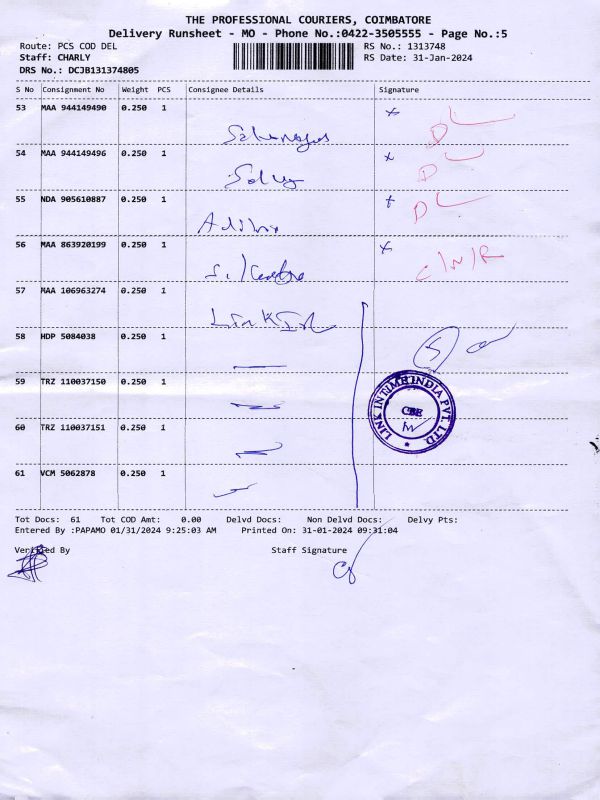 THE PROFESSIONAL COURIERS, COIMBATORE
Delivery Runsheet - MO - Phone No.:0422-3505555 - Page No.:5
Route: PCS COD DEL RS No.: 1313748
Staff: CHARLY RS Date: 31-Jan-2024
DRS No.: DCJB131374805
S No Consignment No Weight PCS Consignee Details Signature
53 MAA 944149490 0.250 1 x D
54 MAA 944149496 0.250 1 x D
55 NDA 905610887 0.250 1 x D
56 MAA 863920199 0.250 1 x C/W/R
57 MAA 106963274 0.250 1 Link In
58 HDP 5084038 0.250 1
59 TRZ 110037150 0.250 1
60 TRZ 110037151 0.250 1
61 VCM 5062878 0.250 1
LINK INTIME INDIA PVT. LTD.
CBE
Tot Docs: 61 Tot COD Amt: 0.00 Delvd Docs: Non Delvd Docs: Delvy Pts:
Entered By :PAPAMO 01/31/2024 9:25:03 AM Printed On: 31-01-2024 09:31:04
Verified By Staff Signature